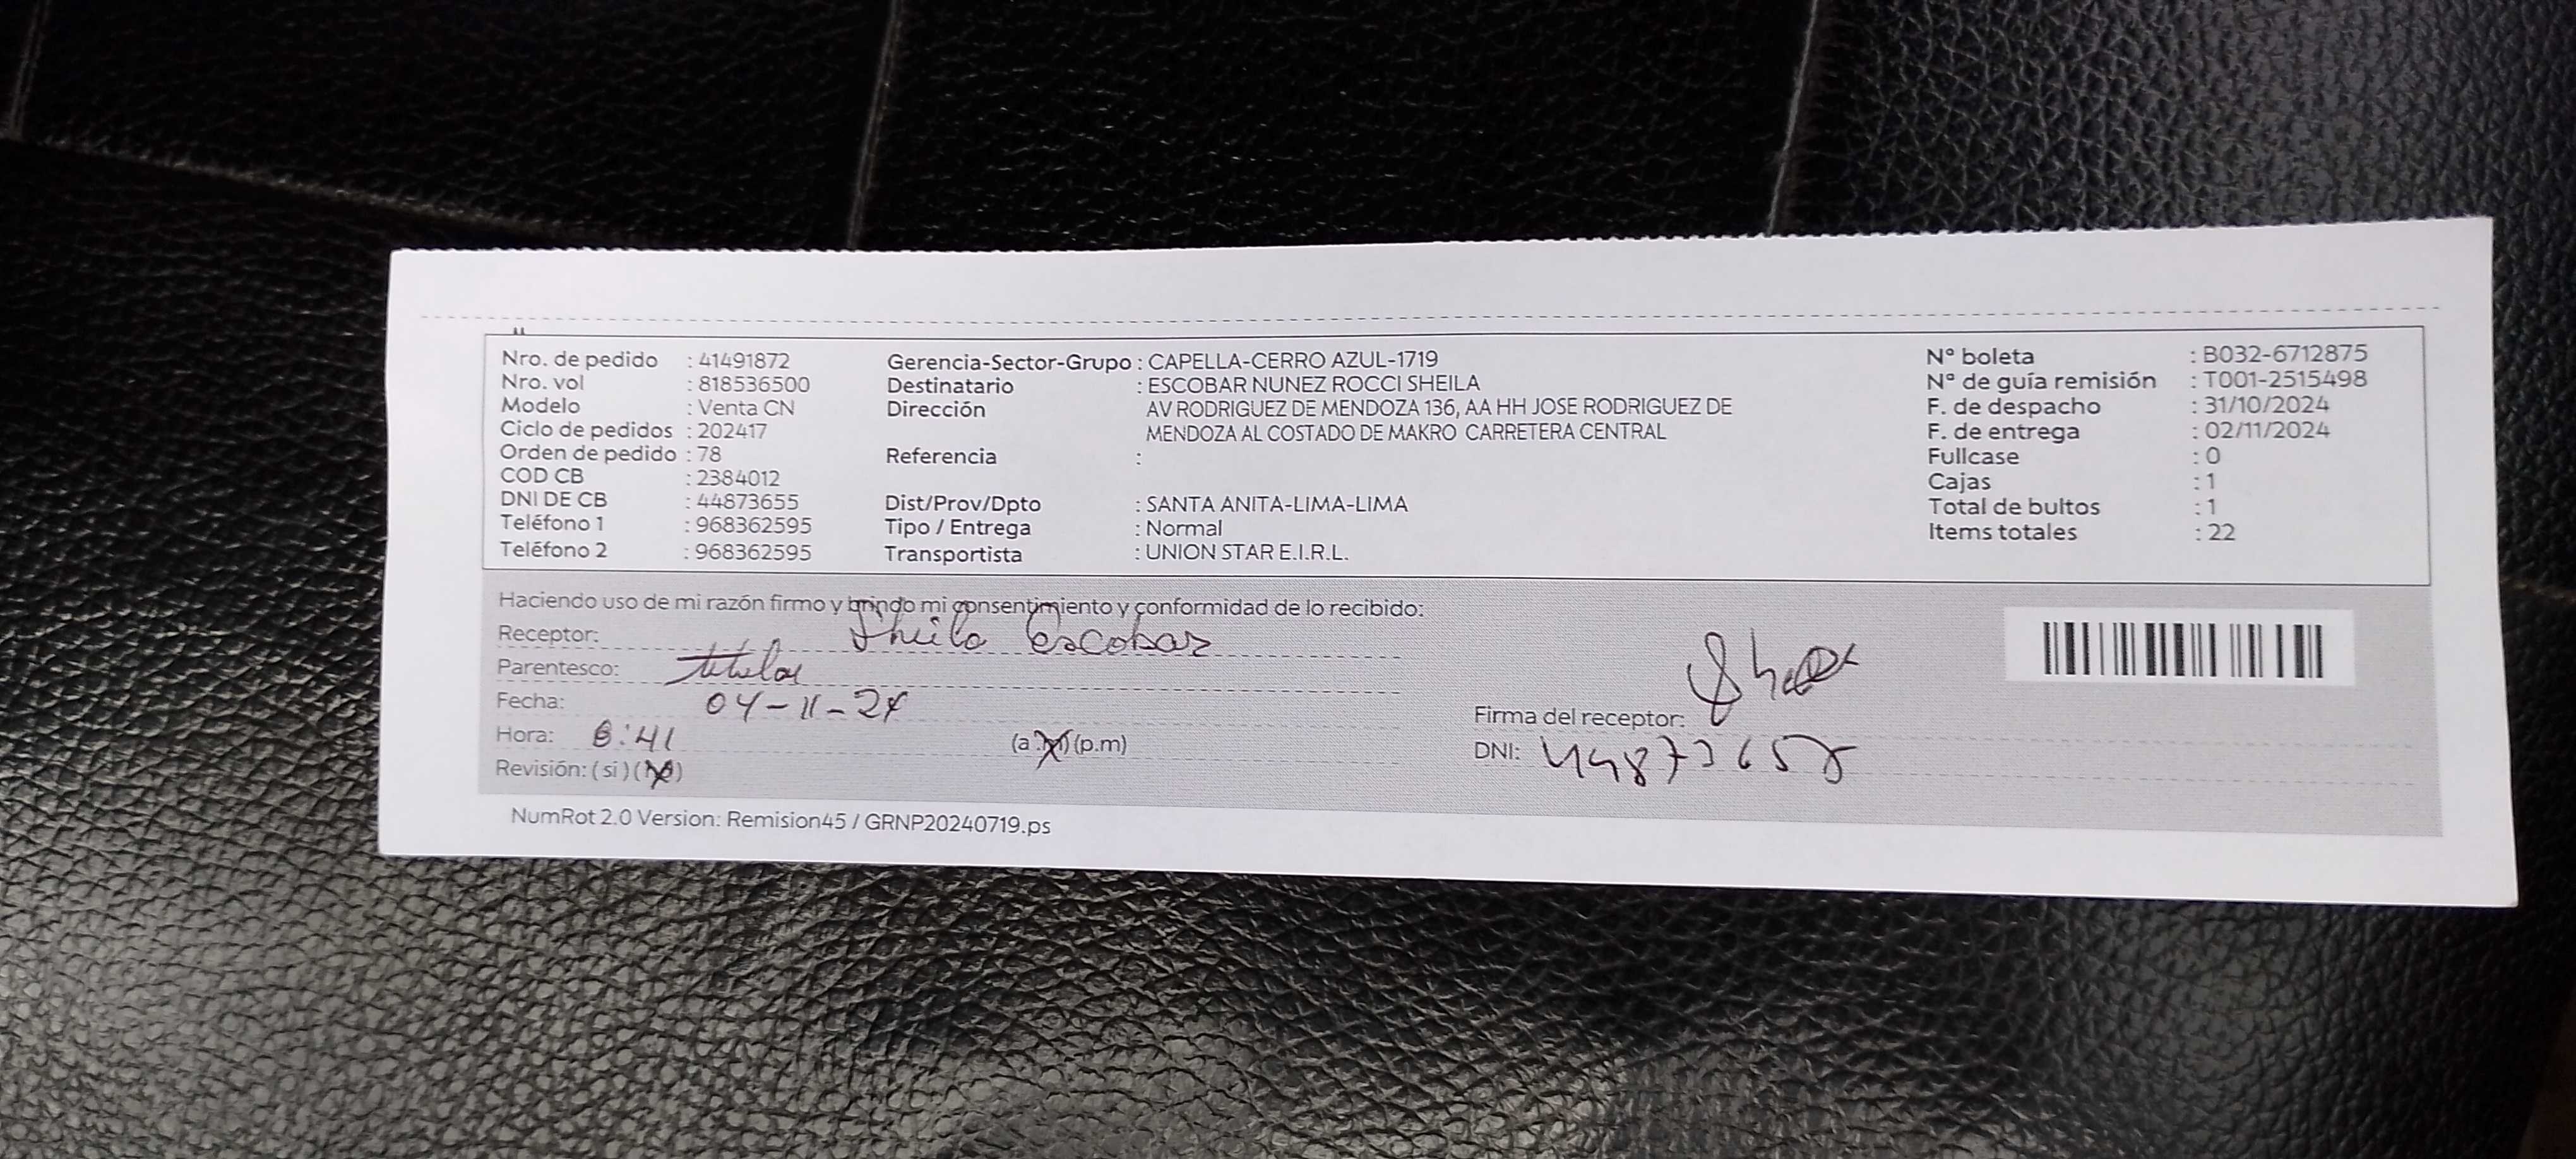 Nro. de pedido : 41491872
Nro. vol : 818536500
Modelo : Venta CN
Ciclo de pedidos : 202417
Orden de pedido : 78
COD CB : 2384012
DNI DE CB : 44873655
Teléfono 1 : 968362595
Teléfono 2 : 968362595
Gerencia-Sector-Grupo : CAPELLA-CERRO AZUL-1719
Destinatario : ESCOBAR NUNEZ ROCCI SHEILA
Dirección AV RODRIGUEZ DE MENDOZA 136, AA HH JOSE RODRIGUEZ DE
MENDOZA AL COSTADO DE MAKRO CARRETERA CENTRAL
Referencia :
Dist/Prov/Dpto : SANTA ANITA-LIMA-LIMA
Tipo / Entrega : Normal
Transportista : UNION STAR E.I.R.L.
Nº boleta : B032-6712875
Nº de guía remisión : T001-2515498
F. de despacho : 31/10/2024
F. de entrega : 02/11/2024
Fullcase : 0
Cajas : 1
Total de bultos : 1
Items totales : 22
Haciendo uso de mi razón firmo y brindo mi consentimiento y conformidad de lo recibido:
Receptor: Sheila Escobar
Parentesco: titular
Fecha: 04-11-24
Hora: 6:41 (a.m) (p.m)
Revisión: (si) (no)
Firma del receptor:
DNI: 44873655
NumRot 2.0 Version: Remision45 / GRNP20240719.ps